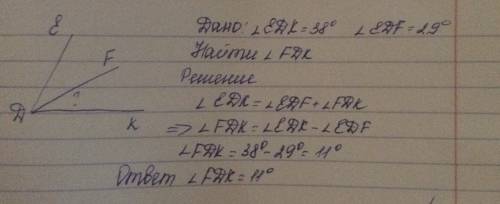 Дано: ∠EDK=38° ∠EDF=29°
Найти ∠FDK
Решение
∠EDK=∠EDF+∠FDK
=> ∠FDK=∠EDK-∠EDF
∠FDK=38°-29°=11°
Ответ ∠FDK=11°
E
F
?
D
K